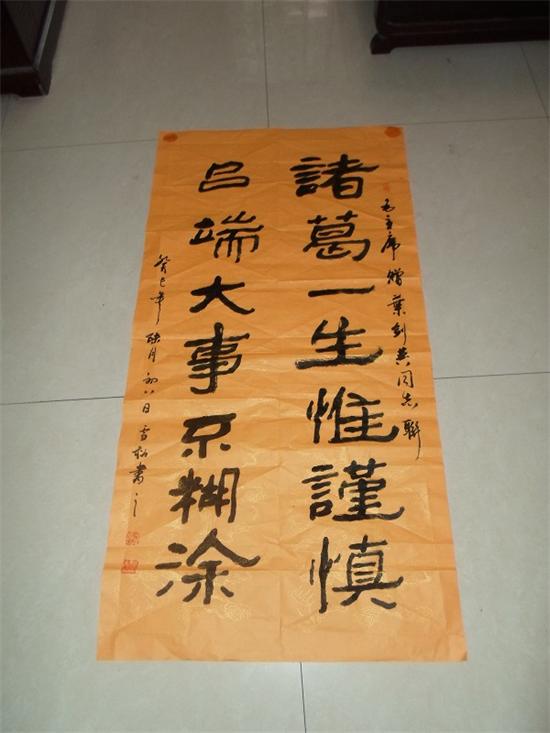 毛主席赠葉剑英同志聯
諸葛一生惟謹慎
吕端大事不糊涂
癸巳年 月初八日雪松書之